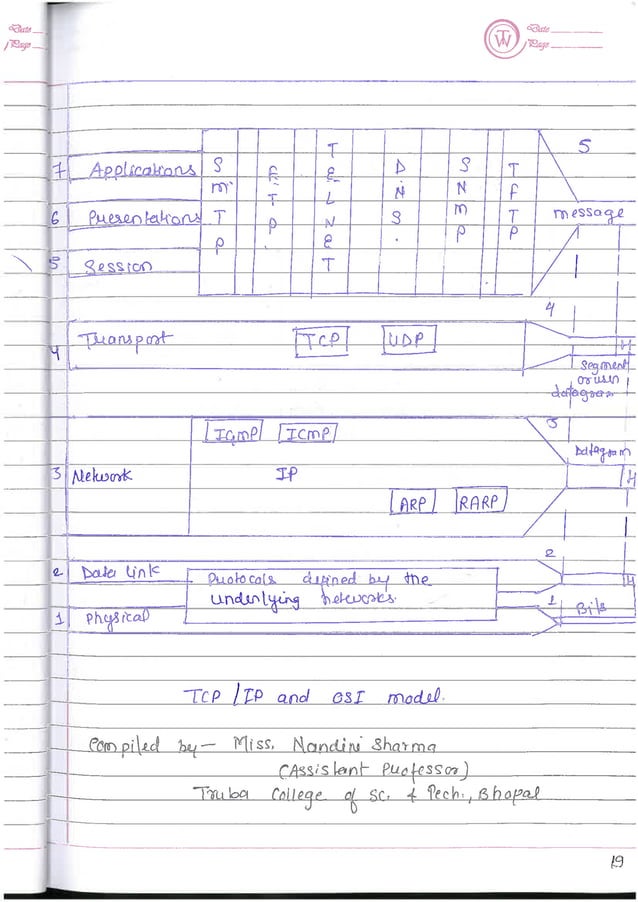 Date
Page
Date
Page
TW
5
7 Applications
6 Presentations
5 Session
SMTP
FTP
TELNET
DNS
SNMP
TFTP
message
4
4 Transport
TCP
UDP
H
Segment
or user
datagram
3
IGMP
ICMP
Datagram
3 Network
IP
H
ARP
RARP
2
2 Data link
Protocols defined by the
underlying networks.
H
1 physical
1
Bits
TCP/IP and OSI model.
Compiled by - Miss. Nandini Sharma
(Assistant Professor)
Truba College of Sc. & Tech., Bhopal
19